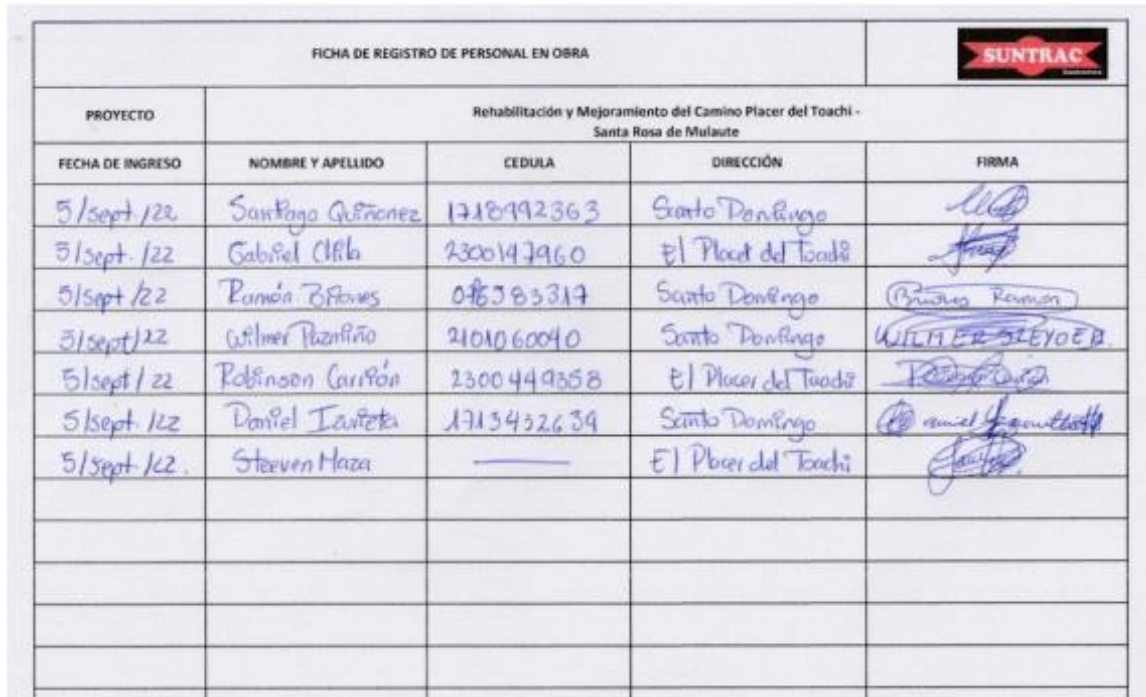 FICHA DE REGISTRO DE PERSONAL EN OBRA
SUNTRAC
PROYECTO Rehabilitación y Mejoramiento del Camino Placer del Toachi -
Santa Rosa de Mulaute
FECHA DE INGRESO NOMBRE Y APELLIDO CEDULA DIRECCIÓN FIRMA
5/sept./22 Santiago Quiñonez 1718992363 Santo Domingo
5/sept./22 Gabriel Chila 2300147960 El Placer del Toachi
5/sept/22 Ramón Briones Santo Domingo Briones Ramon
5/sept/22 Wilmer Pazmiño 2101060040 Santo Domingo WILMER
5/sept/22 Robinson Carrión 2300449358 El Placer del Toachi
5/sept./22 Daniel 1713432639 Santo Domingo
5/sept./22. Steeven Maza El Placer del Toachi